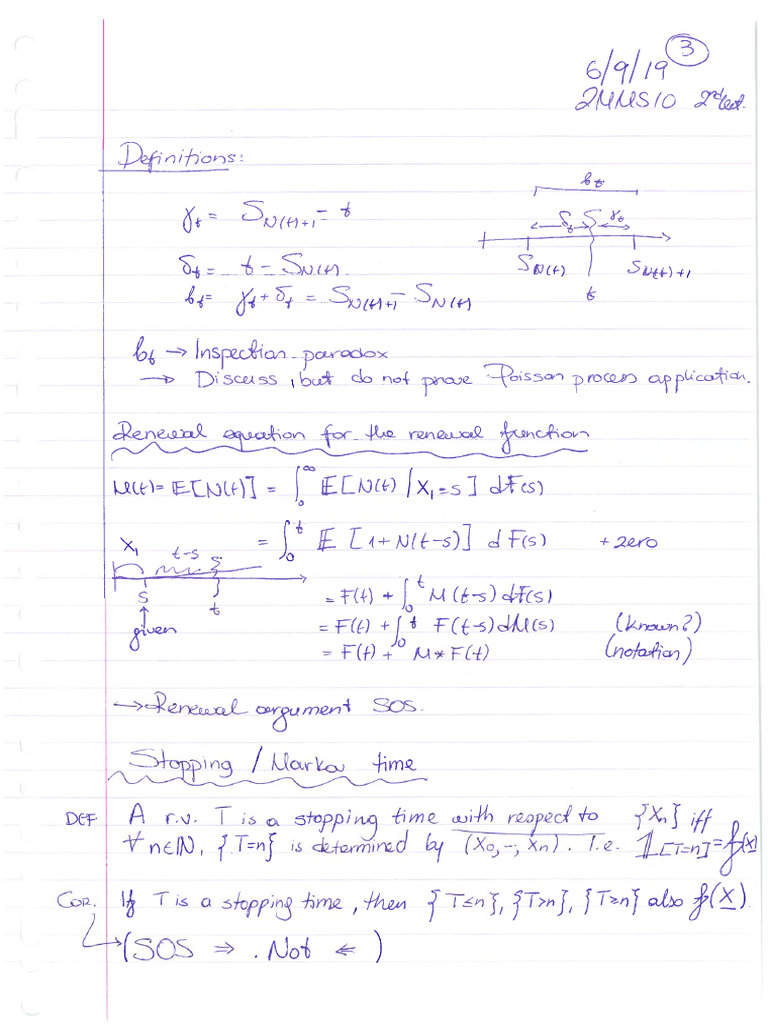 3
6/9/19
2MMS10 2nd lect.
Definitions:
γt = S_{N(t)+1} - t
δt = t - S_{N(t)}
bt = γt + δt = S_{N(t)+1} - S_{N(t)}
bt
δt γt
S_{N(t)} S_{N(t)+1}
t
bt → Inspection paradox
→ Discuss, but do not prove Poisson process application.
Renewal equation for the renewal function
M(t) = 𝔼[N(t)] = ∫_0^∞ 𝔼[N(t) / X_1=s] dF(s)
= ∫_0^t 𝔼[1+N(t-s)] dF(s) + zero
X_1 t-s
s t
given
= F(t) + ∫_0^t M(t-s) dF(s)
= F(t) + ∫_0^t F(t-s) dM(s) (known?)
= F(t) + M * F(t) (notation)
→ Renewal argument SOS.
Stopping / Markov time
DEF A r.v. T is a stopping time with respect to {Xn} iff
∀ n∈ℕ, {T=n} is determined by (X_0, -, X_n). I.e. 𝟙_[T=n] = f(X)
COR. If T is a stopping time, then {T≤n}, {T>n}, {T≥n} also f(X).
(SOS ⇒ . Not ⇐ )